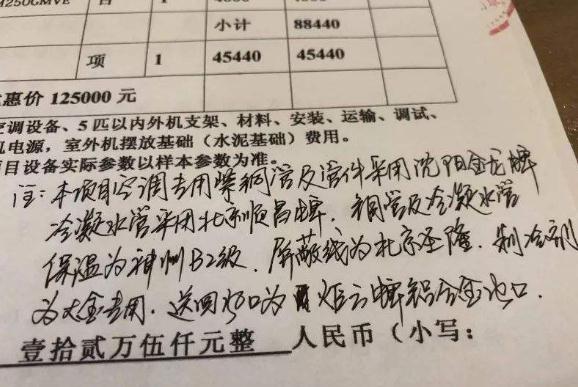 小计 88440
项 1 45440 45440
惠价 125000 元
调设备、5 匹以内外机支架、材料、安装、运输、调试、
电源，室外机摆放基础（水泥基础）费用。
目设备实际参数以样本参数为准。
注：本项目空调专用紫铜管及管件采用沈阳金龙牌
冷凝水管采用北京恒昌牌．铜管及冷凝水管
保温为神州B2级．屏蔽线为北京圣隆．制冷剂
为大金专用．送回风口为 牌铝合金风口．
壹拾贰万伍仟元整 人民币（小写：